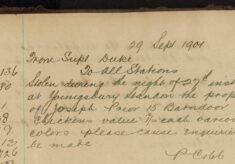 29 Sept 1901
From Supt Duke
To all Stations
136
Stolen during the night of 27th inst
at Youngsbury Standon the prop
of Joseph Prior 15 Barndoor
Chickens value 7/- each various
colors please cause enquiries
be made
P C 166